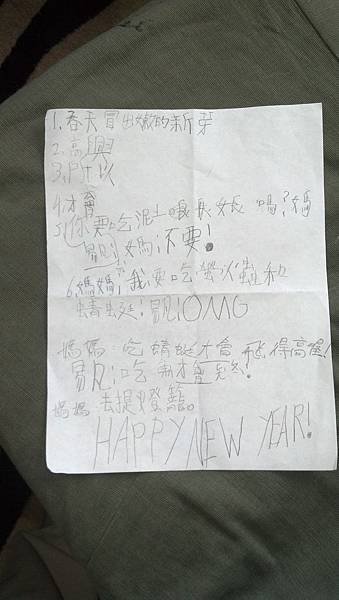 1.春天冒出嫩的新芽
2.高興
3.所以
4.才會
5.你要吃泥土 嗎?媽
媽:不要!
6.媽媽:我要吃螢火蟲和
蜻蜓!OMG
媽媽:吃蜻蜓才會飛得高喔!
吃 才會
媽媽 去提燈籠。
HAPPY NEW YEAR!